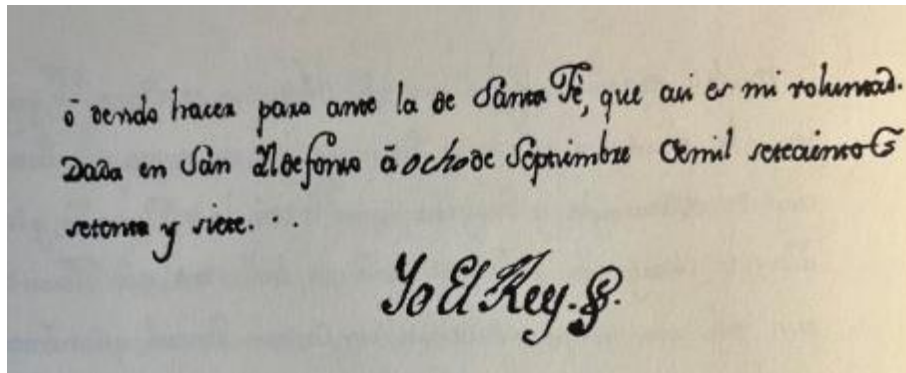 ó dendo hacer para ante la de Santa Fè, que asi es mi voluntad.
Dada en San Ildefonso à ocho de Septiembre de mil setecientos
setenta y siete. . .
Yo El Rey.